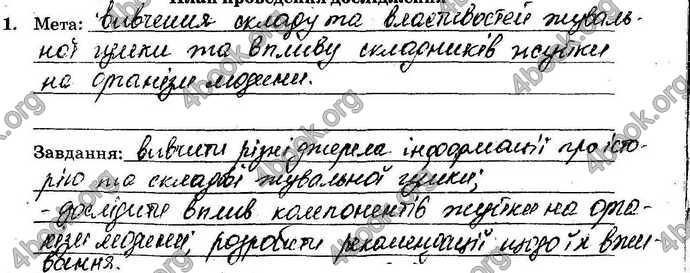 План проведення дослідження
1. Мета: вивчення складу та властивостей жуваль-
ної гумки та впливу складників жуйки
на організм людини.
Завдання: вивчити різні джерела інформації про істо-
рію та складові жувальної гумки;
- дослідити вплив компонентів жуйки на орга-
нізм людини; розробити рекомендації щодо їх вжи-
вання.
4book.org